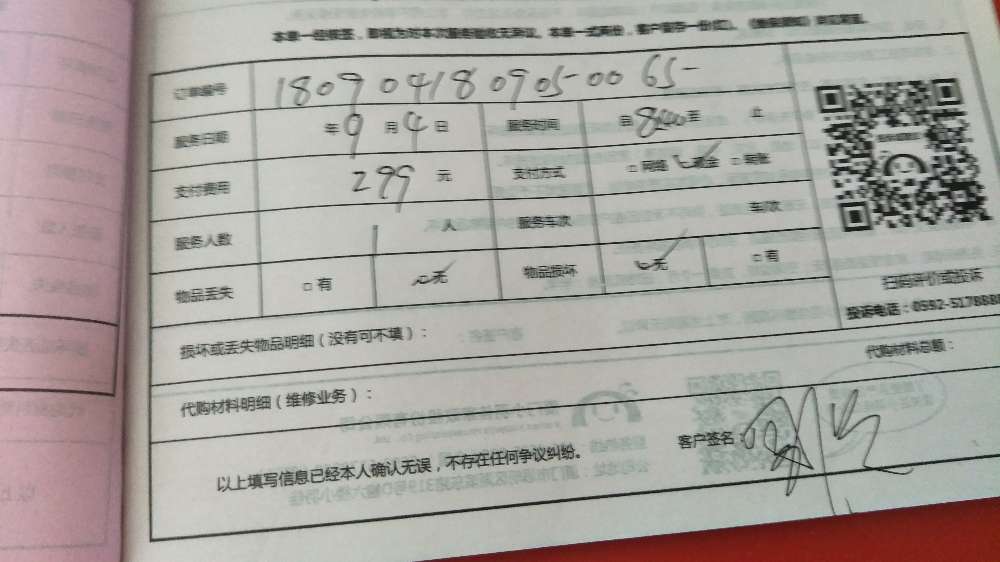 本单一经签签,即视为对本次服务验收无异议。本单一式两份,客户留存一份(红)。
订单编号 180904180905-0065-
服务日期 年9月4日 服务时间 自8:00至 止
支付费用 299 元 支付方式 □网络 ☑现金 □转账
服务人数 1 人 服务车次 车/次
物品丢失 □有 ☑无 物品损坏 ☑无 □有
扫码评价或投诉
投诉电话:0592-5178888
损坏或丢失物品明细(没有可不填):
代购材料明细(维修业务): 代购材料总额:
以上填写信息已经本人确认无误,不存在任何争议纠纷。 客户签名: